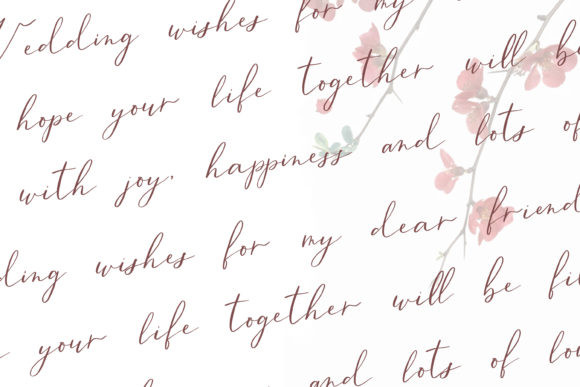 Wedding wishes for my
hope your life together will be
with joy, happiness and lots of
wishes for my dear friend
your life together will be
and lots of